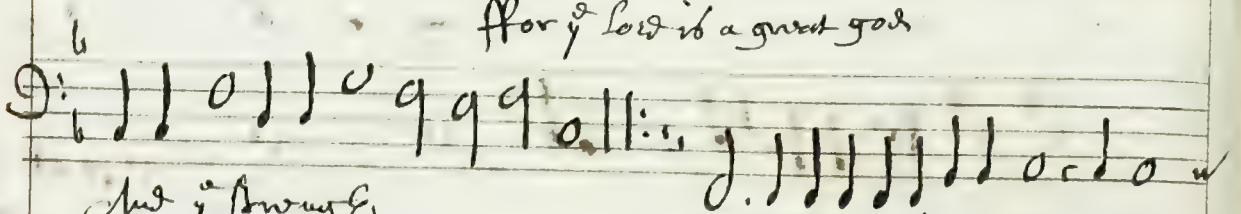 ffor yᵉ Lord is a great god
And yᵉ